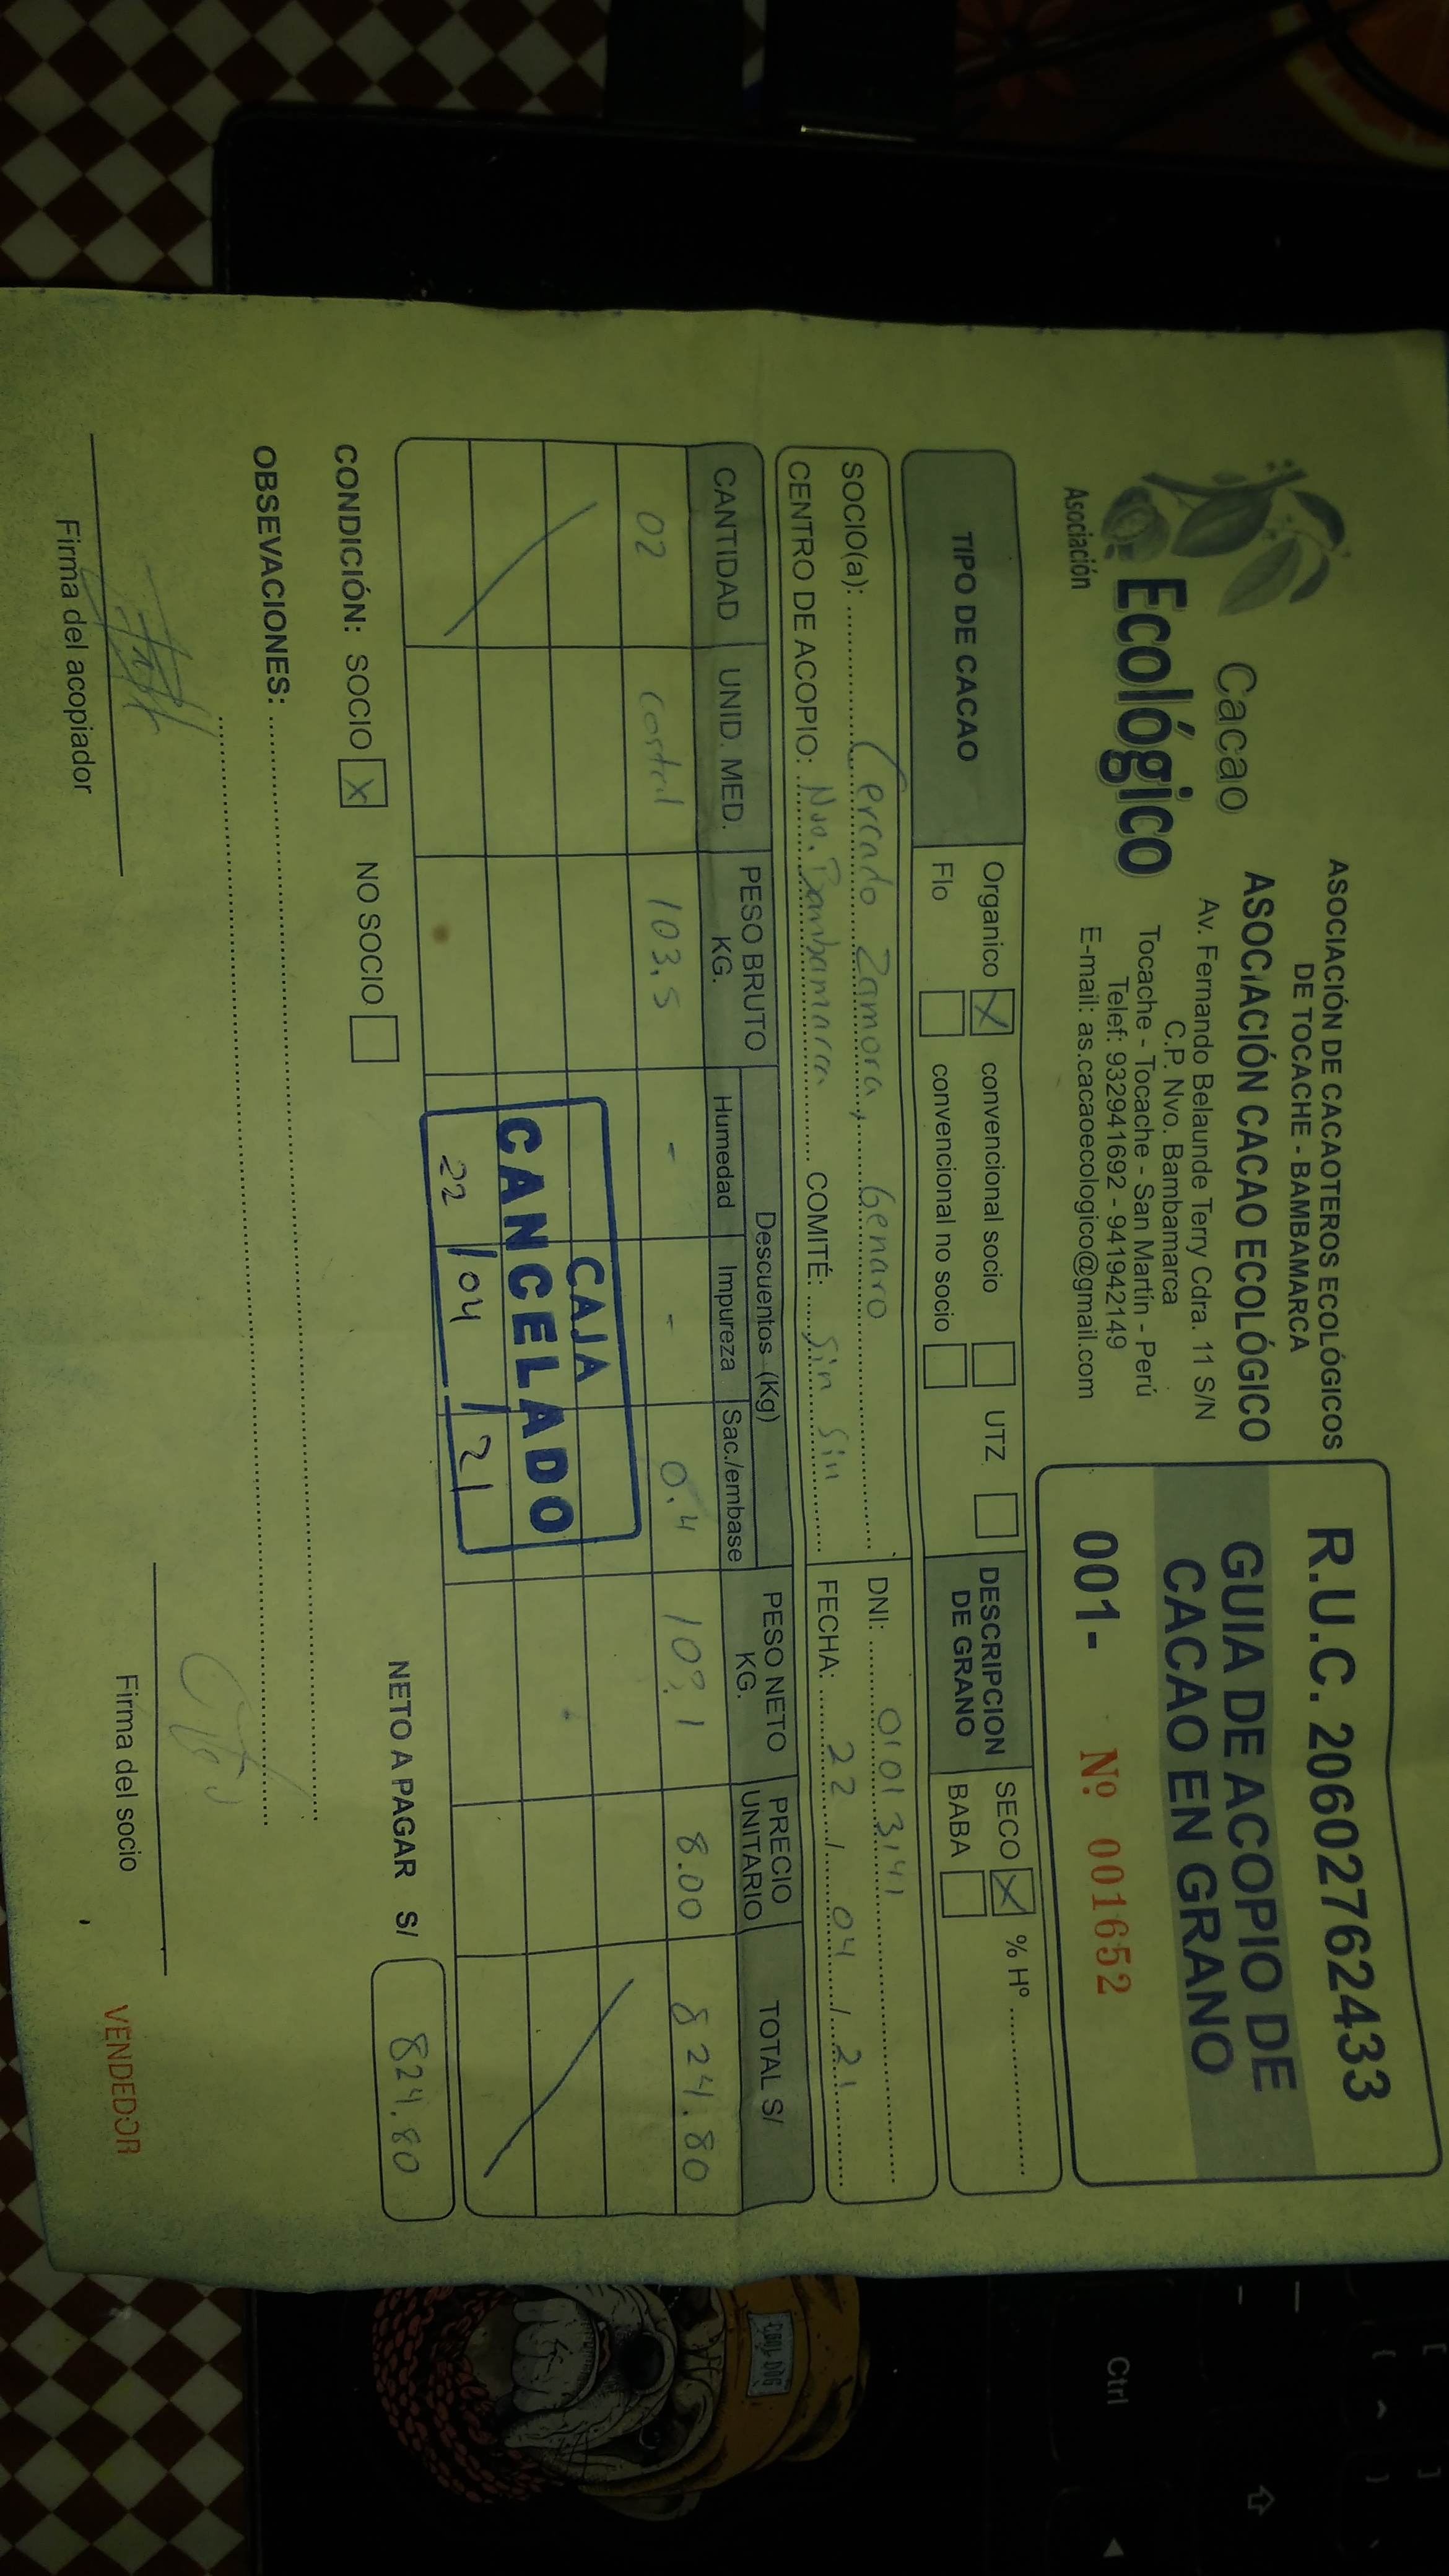 ASOCIACIÓN DE CACAOTEROS ECOLÓGICOS
DE TOCACHE - BAMBAMARCA
ASOCIACIÓN CACAO ECOLÓGICO
Av. Fernando Belaunde Terry Cdra. 11 S/N
C.P. Nvo. Bambamarca
Tocache - Tocache - San Martín - Perú
Telef: 932941692 - 941942149
E-mail: as.cacaoecologico@gmail.com
Cacao
Ecológico
Asociación
R.U.C. 20602762433
GUIA DE ACOPIO DE
CACAO EN GRANO
001- Nº 001652
TIPO DE CACAO
Organico X convencional socio UTZ
Flo convencional no socio
DESCRIPCION
DE GRANO
SECO X % Hº
BABA
SOCIO(a): Cercado Zamora, Genaro
DNI: 01013141
CENTRO DE ACOPIO: Nvo. Bambamarca COMITÉ: Sin Sin
FECHA: 22 / 04 / 21
CANTIDAD UNID. MED. PESO BRUTO KG. Descuentos (Kg) PESO NETO KG. PRECIO UNITARIO TOTAL S/
Humedad Impureza Sac./embase
02 costal 103.5 - - 0.4 103.1 8.00 824.80
CAJA
CANCELADO
22 / 04 / 21
NETO A PAGAR S/ 824.80
CONDICIÓN: SOCIO X NO SOCIO
OBSEVACIONES:
Firma del acopiador
Firma del socio
VENDEDOR
Ctrl
COOL DOG